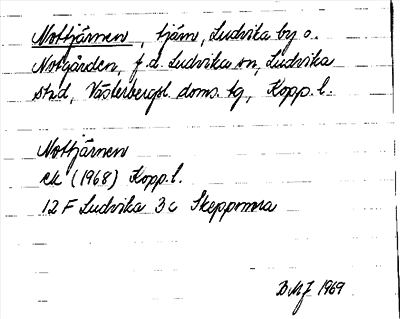 Nottjärnen, tjärn, Ludvika by o.
Notgården, f.d. Ludvika sn, Ludvika
std, Västerbergsl. doms. tg, Kopp. l.
Nottjärnen
ek (1968) Kopp. l.
12 F Ludvika 3 c Skeppmora
BMJ 1969